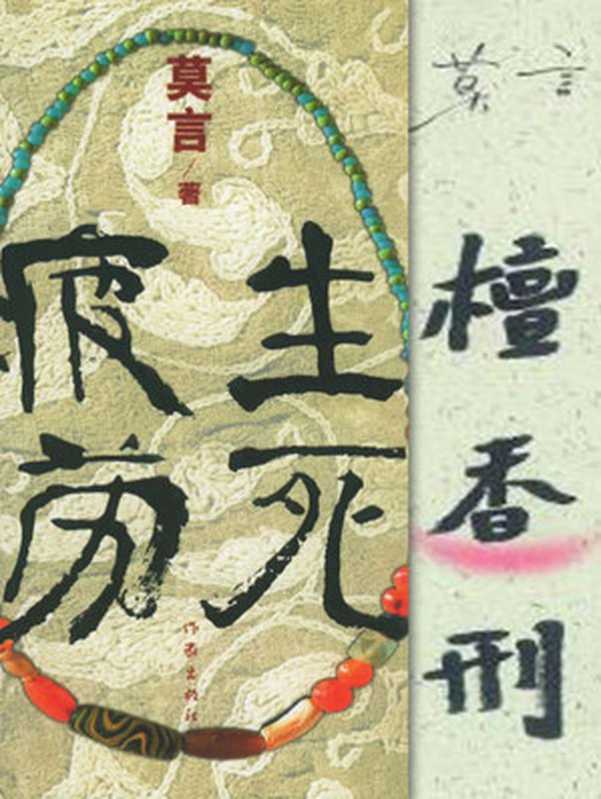 莫言
著
生死
疲劳
作家出版社
莫言
檀香刑